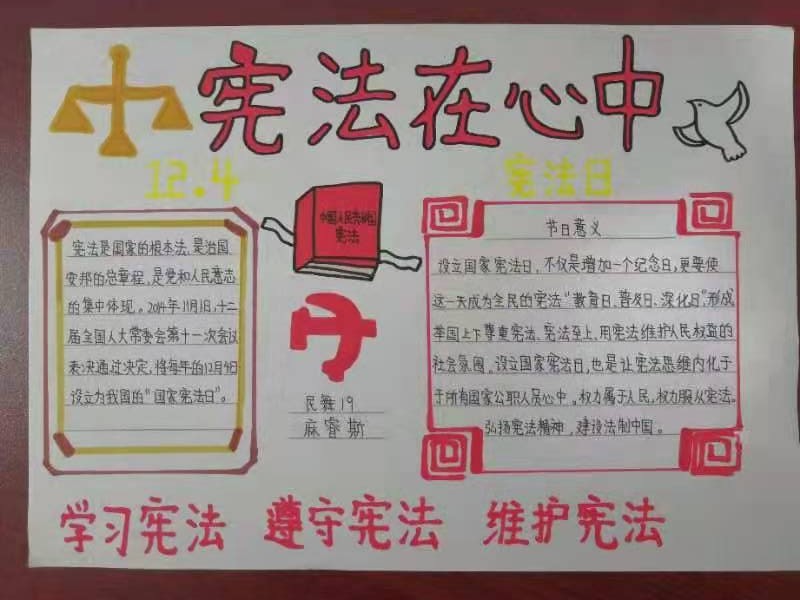 宪法在心中
12.4
宪法日
宪法是国家的根本法,是治国
安邦的总章程,是党和人民意志
的集中体现。2014年11月1日,十二
届全国人大常委会第十一次会议
表决通过决定,将每年的12月4日
设立为我国的“国家宪法日”。
中国人民共和国
宪法
民舞19
麻睿斯
节日意义
设立国家宪法日,不仅是增加一个纪念日,更要使
这一天成为全民的宪法“教育日、普及日、深化日”,形成
举国上下尊重宪法、宪法至上、用宪法维护人民权益的
社会氛围。设立国家宪法日,也是让宪法思维内化于
于所有国家公职人员心中。权力属于人民,权力服从宪法。
弘扬宪法精神,建设法制中国。
学习宪法 遵守宪法 维护宪法